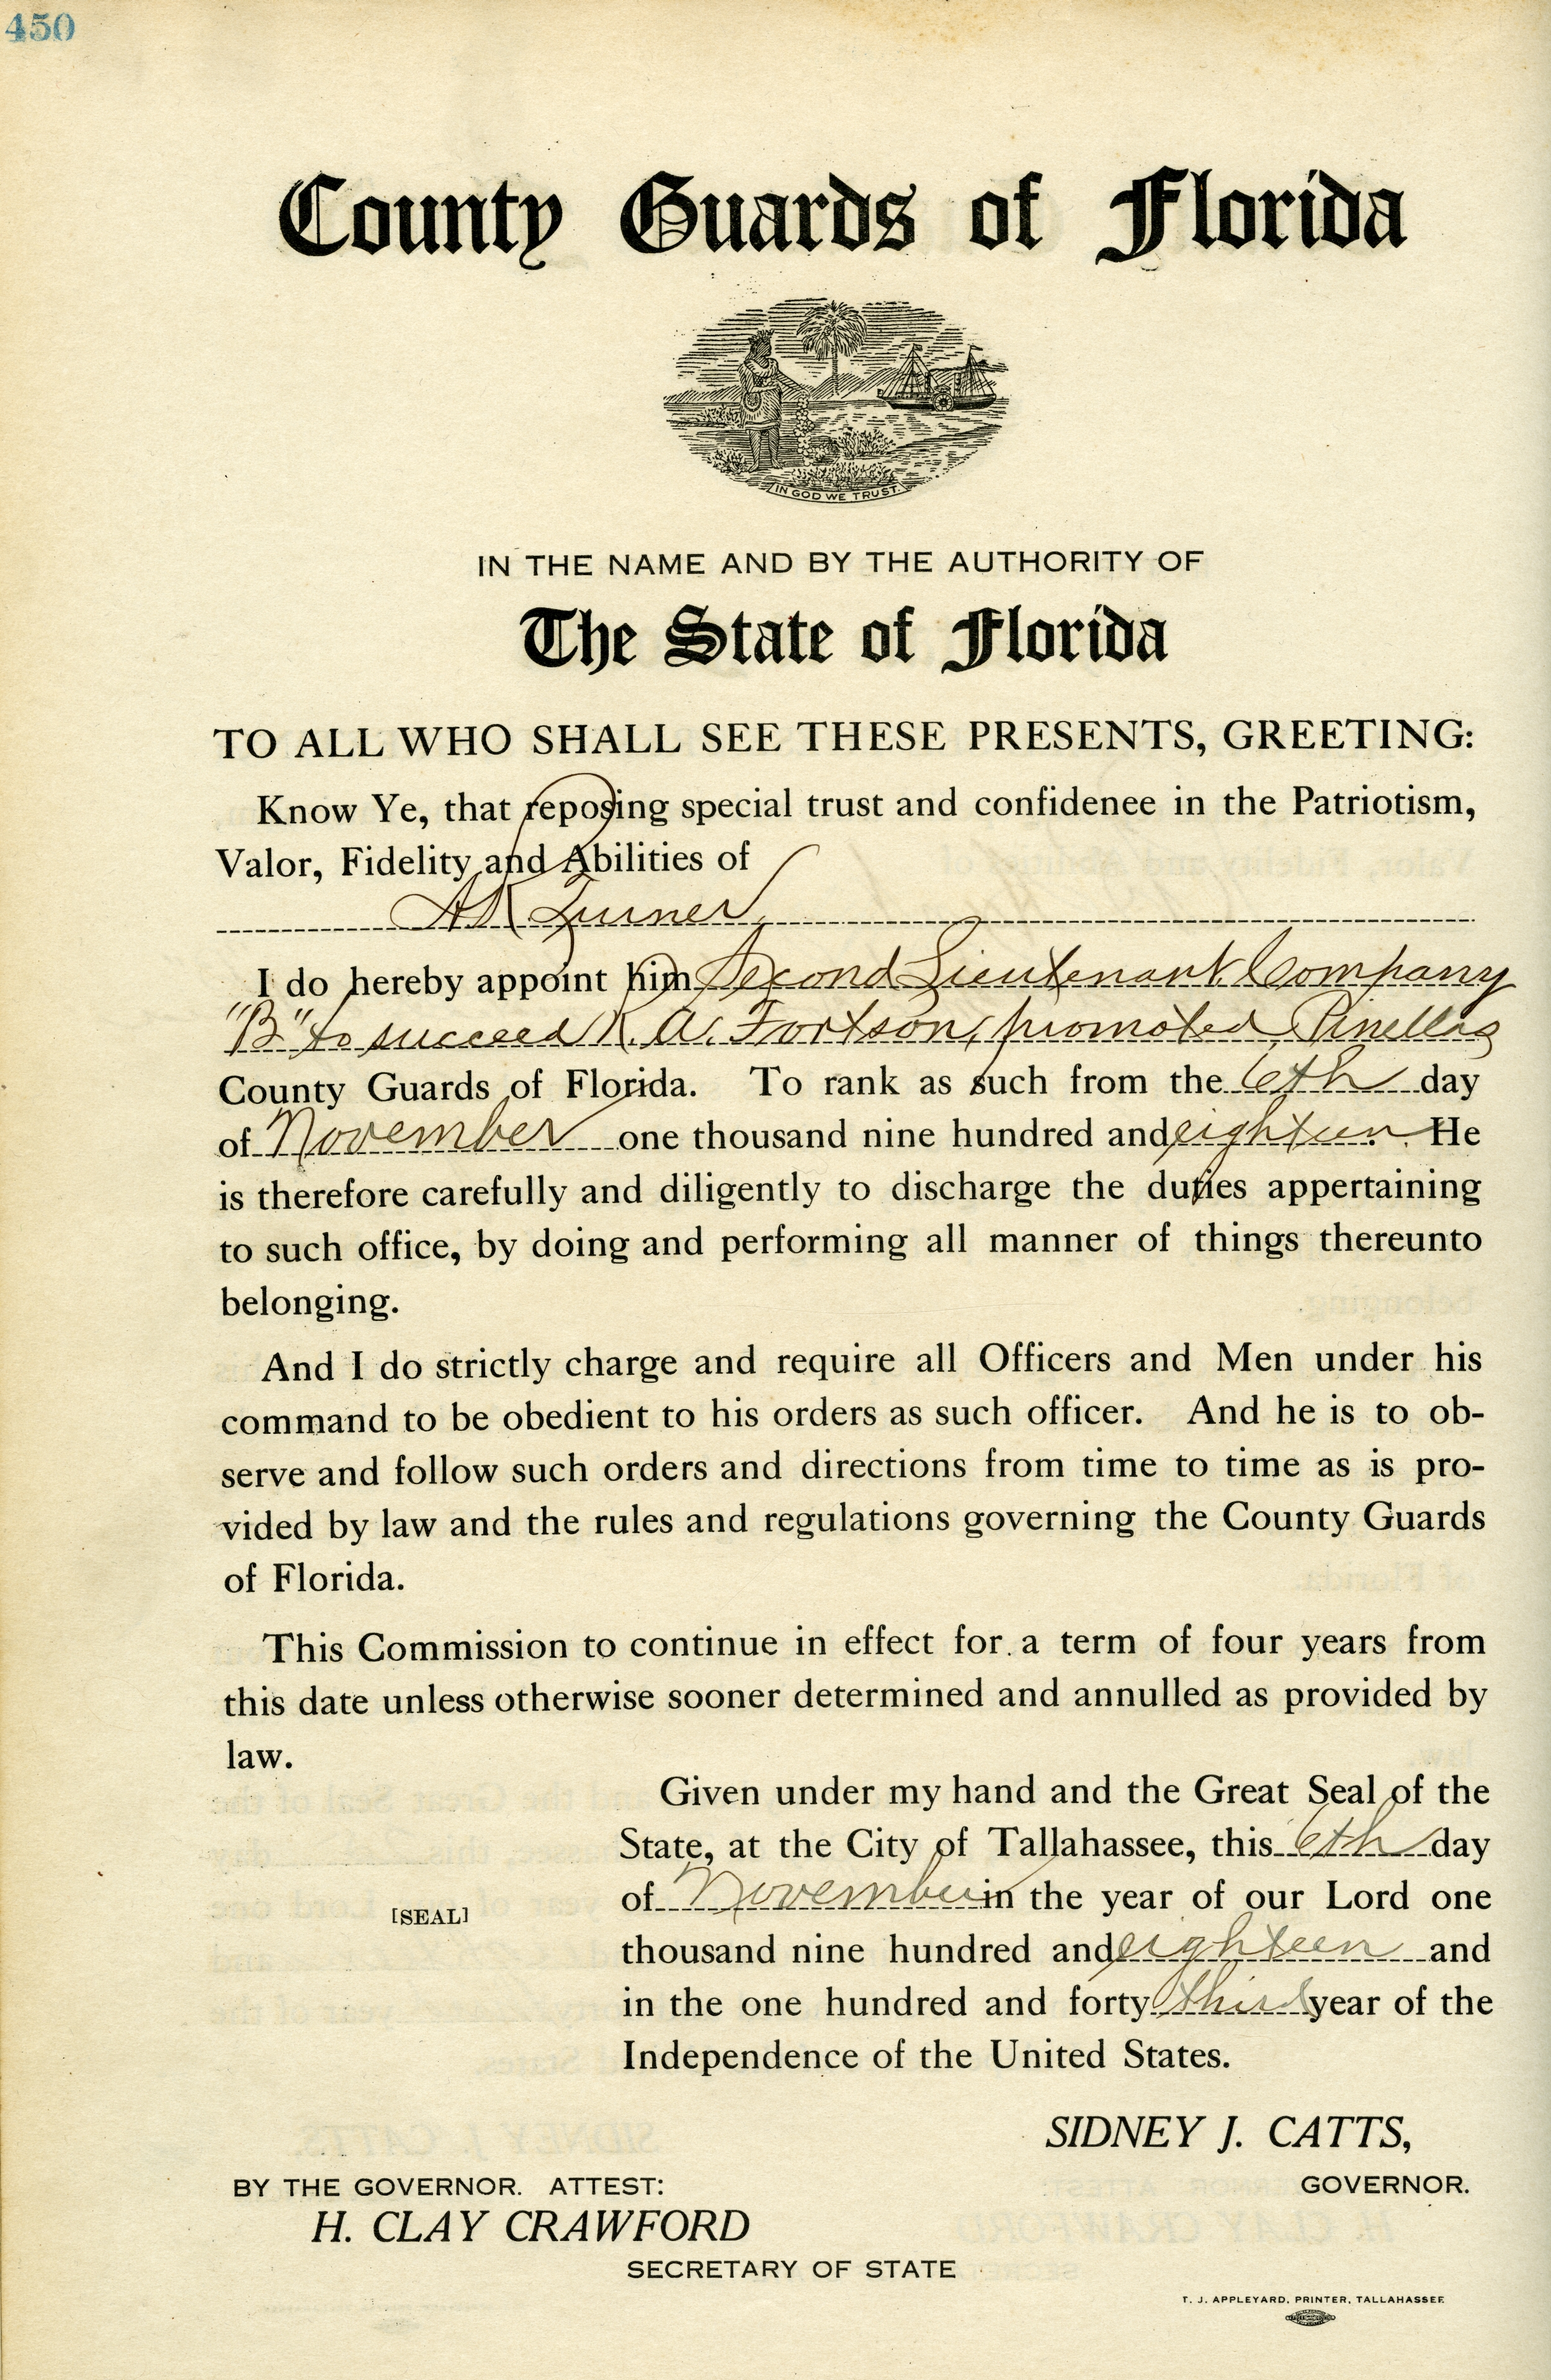 450
County Guards of Florida
IN GOD WE TRUST.
IN THE NAME AND BY THE AUTHORITY OF
The State of Florida
TO ALL WHO SHALL SEE THESE PRESENTS, GREETING:
Know Ye, that reposing special trust and confidenee in the Patriotism,
Valor, Fidelity and Abilities of
A K Turner,
I do hereby appoint him Second Lieutenant Company
"B" to succeed K. A. Fortson, promoted, Pinellas
County Guards of Florida. To rank as such from the 6th day
of November one thousand nine hundred and eighteen. He
is therefore carefully and diligently to discharge the duties appertaining
to such office, by doing and performing all manner of things thereunto
belonging.
And I do strictly charge and require all Officers and Men under his
command to be obedient to his orders as such officer. And he is to ob-
serve and follow such orders and directions from time to time as is pro-
vided by law and the rules and regulations governing the County Guards
of Florida.
This Commission to continue in effect for a term of four years from
this date unless otherwise sooner determined and annulled as provided by
law.
Given under my hand and the Great Seal of the
State, at the City of Tallahassee, this 6th day
of November in the year of our Lord one
[SEAL]
thousand nine hundred and eighteen and
in the one hundred and forty third year of the
Independence of the United States.
SIDNEY J. CATTS,
GOVERNOR.
BY THE GOVERNOR. ATTEST:
H. CLAY CRAWFORD
SECRETARY OF STATE
T. J. APPLEYARD, PRINTER, TALLAHASSEE